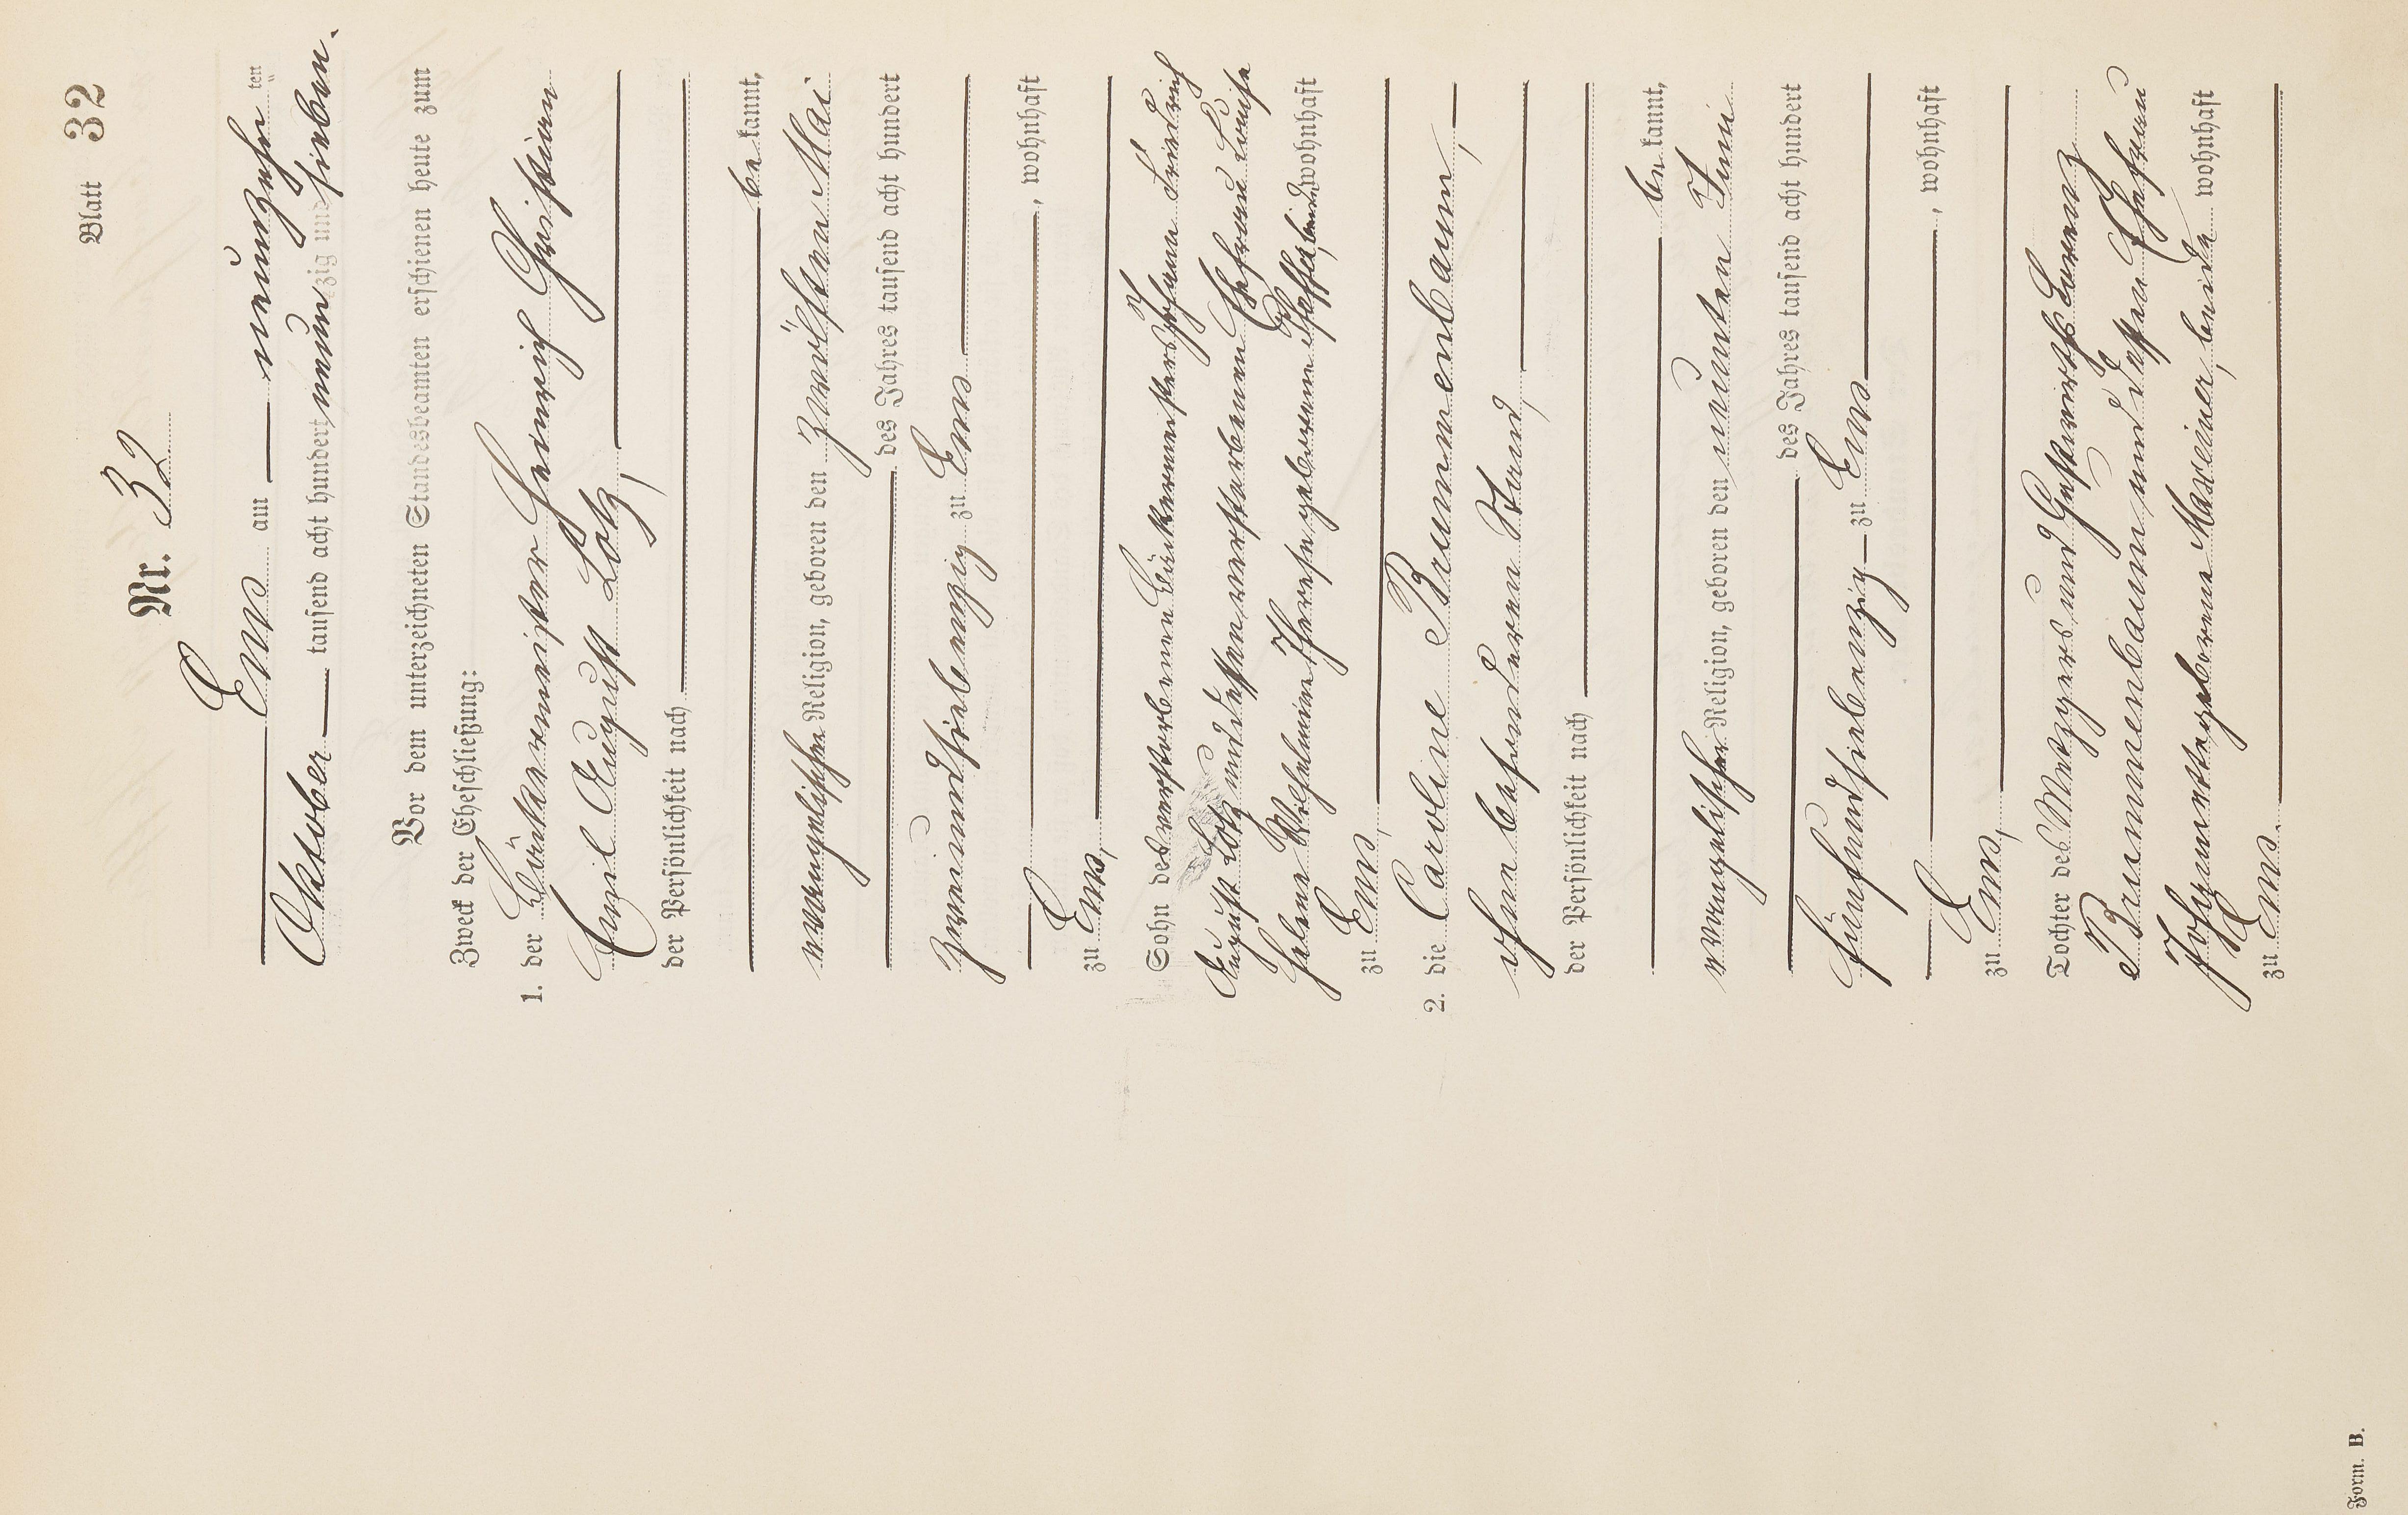 Blatt 32
Nr. 32
Ems am neunzehn ten
Oktober tausend acht hundert neunzig und sieben.
Vor dem unterzeichneten Standesbeamten erschienen heute zum
Zweck der Eheschließung:
1. der Bäckermeister Heinrich Christian
Emil August Lotz,
der Persönlichkeit nach
be kannt,
evangelischer Religion, geboren den zwölften Mai
des Jahres tausend acht hundert
zweiundsiebenzig zu Ems
, wohnhaft
zu Ems,
Sohn des verstorbenen Bäckermeisters Johann Friedrich
August Lotz und dessen verstorbenen Ehefrau Louise
Helene Wilhelmine Therese geborenen wohnhaft
zu Ems,
2. die Caroline Brunnenbaum,
ohne besonderen Stand,
der Persönlichkeit nach
be kannt,
evangelischer Religion, geboren den neunten Juni
des Jahres tausend acht hundert
fünfundsiebenzig zu Ems
, wohnhaft
zu Ems,
Tochter des Metzgers und Gastwirths Lorenz
Brunnenbaum und dessen Ehefrau
Johannette geborene Maxeiner, beide wohnhaft
zu Ems.
Form. B.